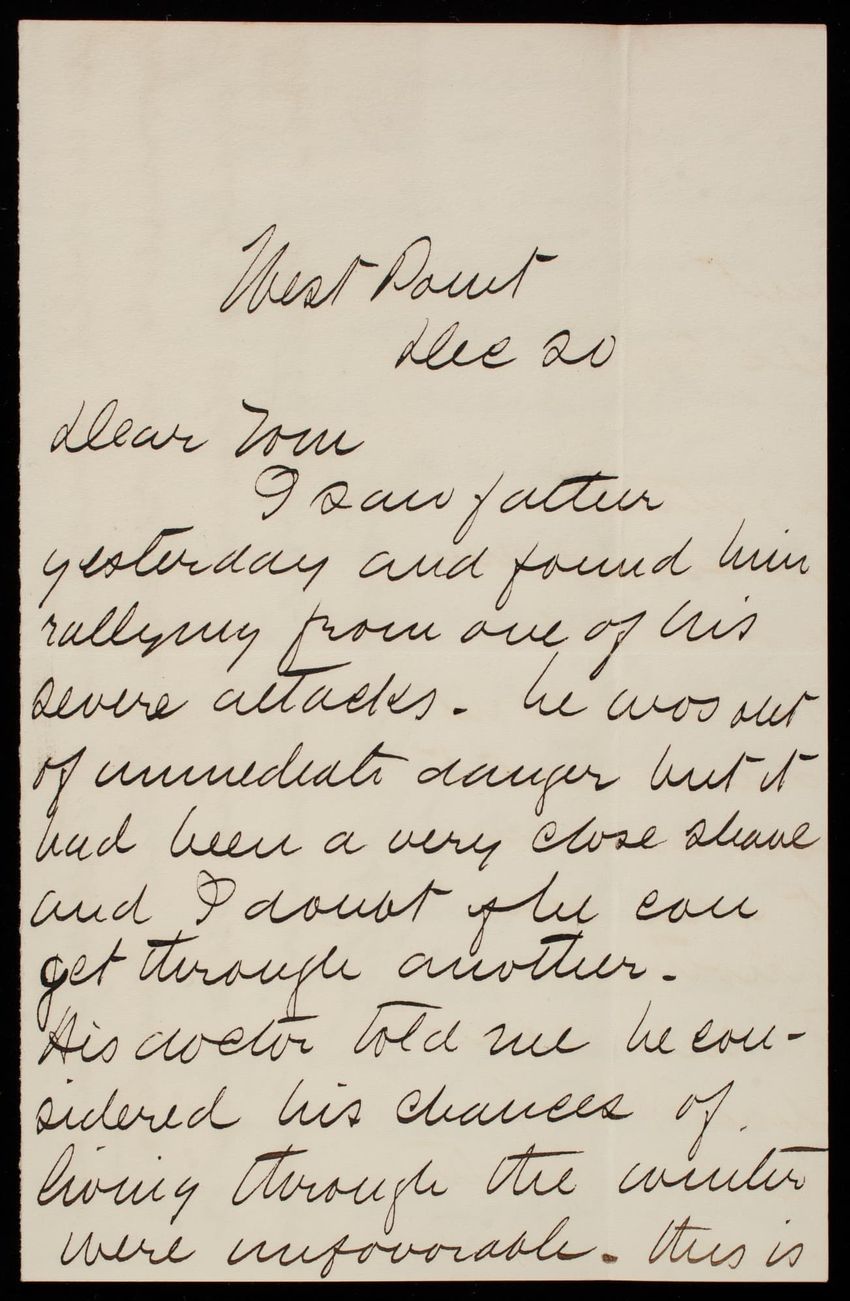 West Point
Dec 20
Dear Tom
I saw father
yesterday and found him
rallying from one of his
severe attacks. he was out
of immediate danger but it
had been a very close shave
and I doubt if he can
get through another.
His doctor told me he con-
sidered his chances of
living through the winter
were unfavorable. this is